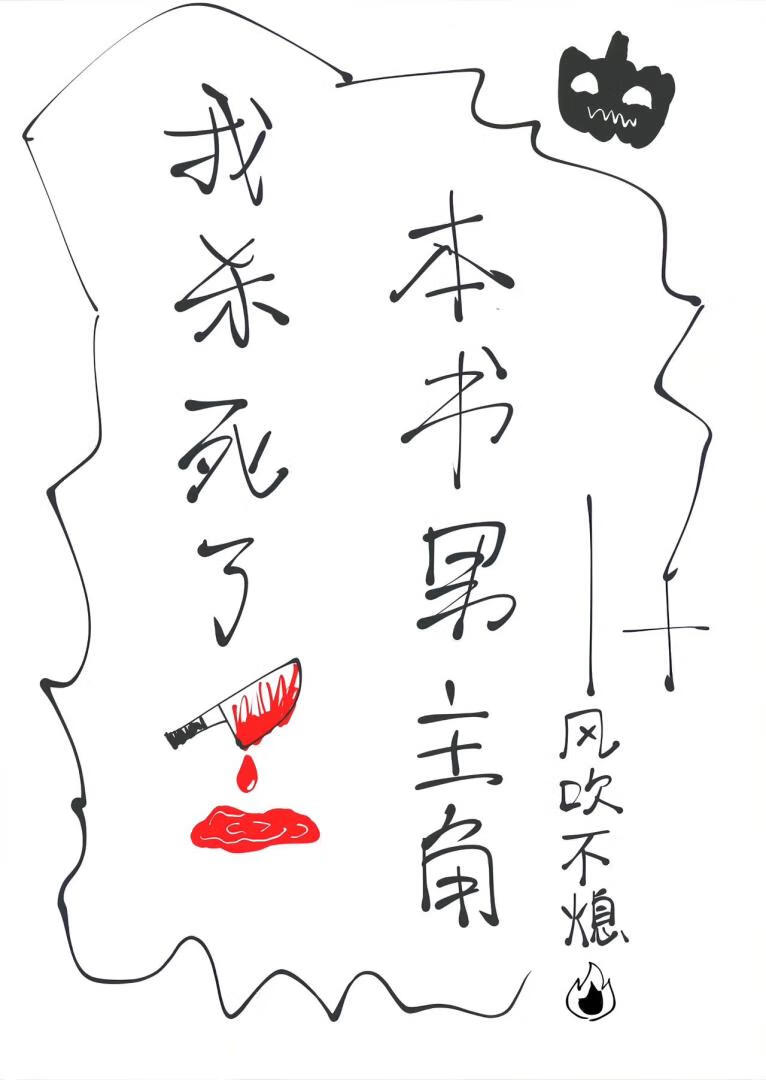 我杀死了
本书男主角
风吹不熄